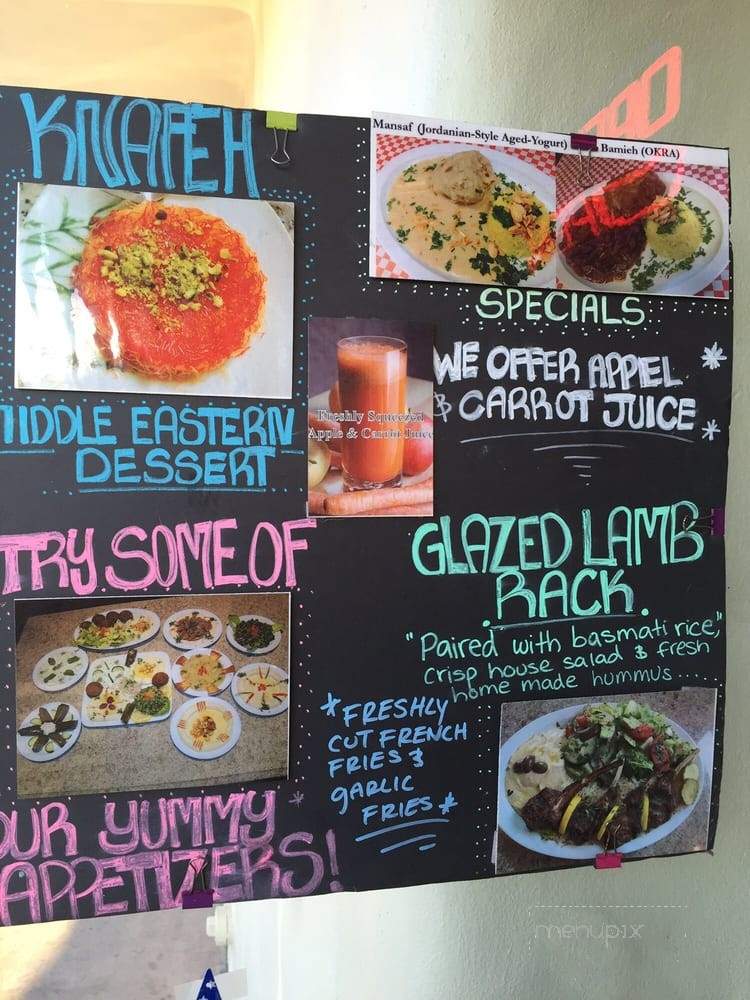 KNAFEH
MIDDLE EASTERN
DESSERT
TRY SOME OF
OUR YUMMY
APPETIZERS!
Mansaf (Jordanian-Style Aged-Yogurt)
Bamieh (OKRA)
SPECIALS
Freshly Squeezed
Apple & Carrot Juice
WE OFFER APPLEL
& CARROT JUICE
GLAZED LAMB
RACK
"Paired with basmati rice,"
crisp house salad & fresh
home made hummus....
*FRESHLY
CUT FRENCH
FRIES &
GARLIC
FRIES*
menupix